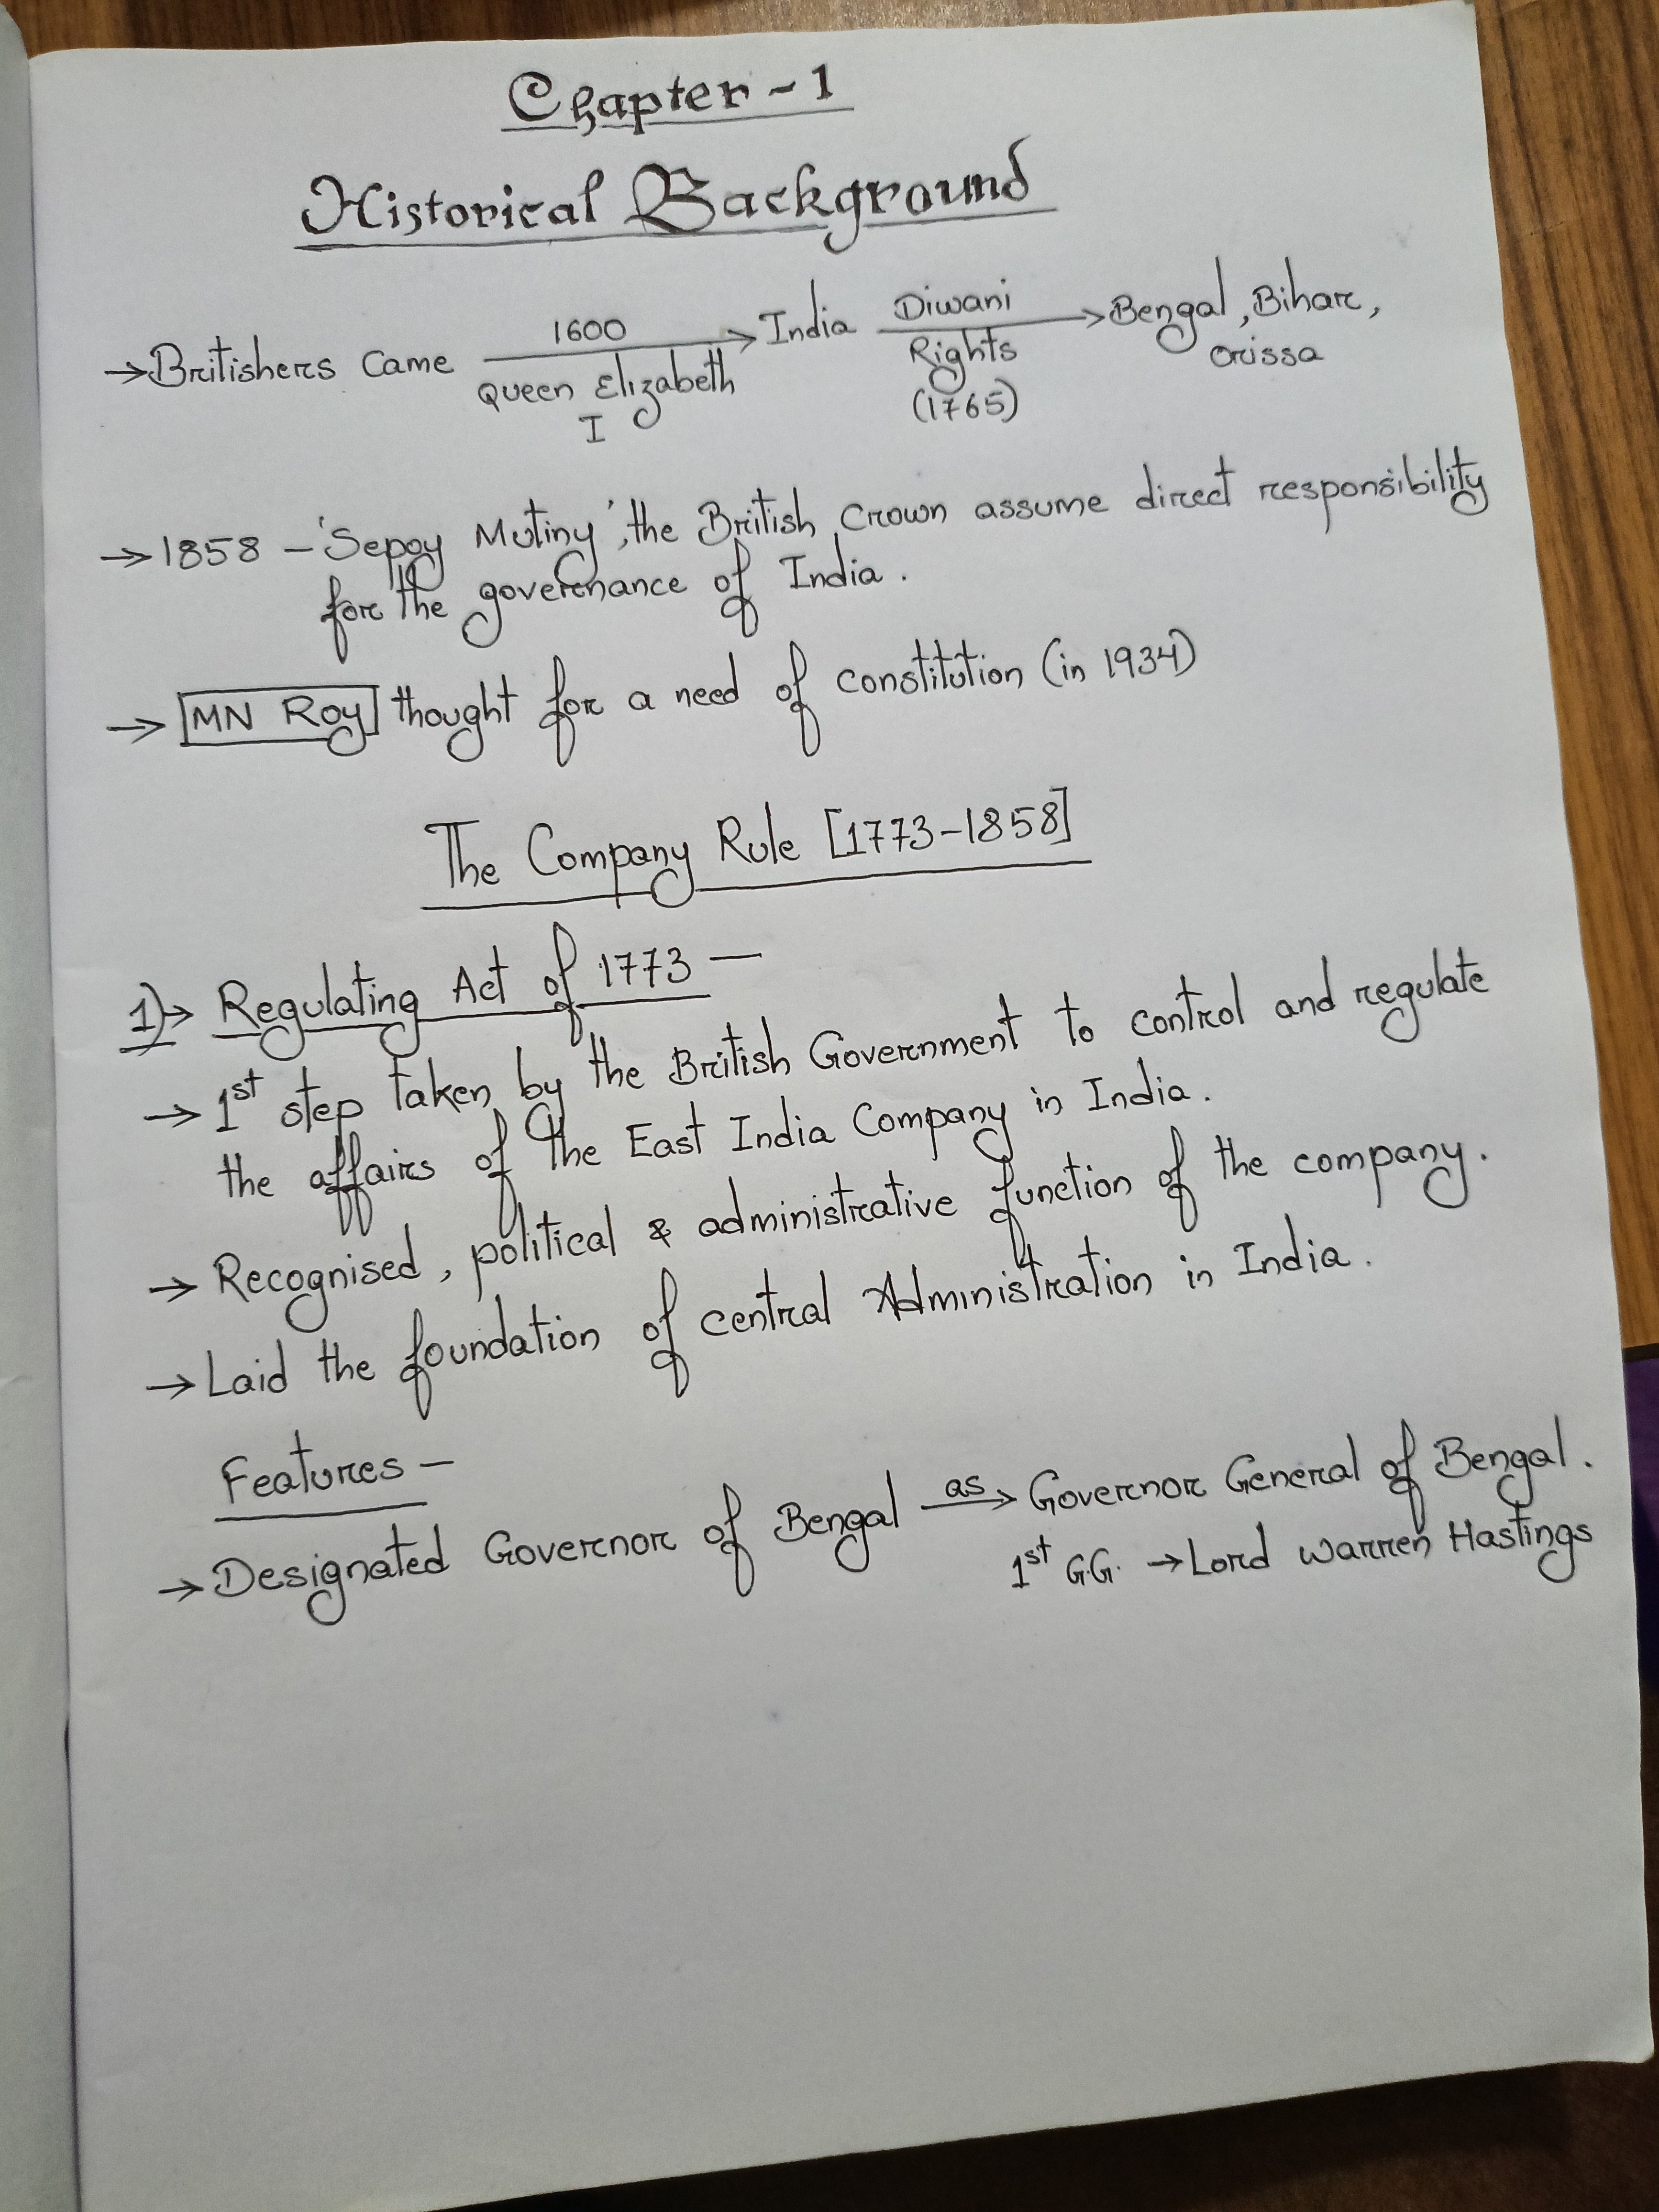 Chapter - 1
Historical Background
→ Britishers Came 1600 → India Diwani → Bengal, Bihar,
Queen Elizabeth I Rights (1765) Orissa
→ 1858 - 'Sepoy Mutiny', the British Crown assume direct responsibility
for the governance of India.
→ MN Roy thought for a need of constitution (in 1934)
The Company Rule [1773-1858]
1) → Regulating Act of 1773 —
→ 1st step taken by the British Government to control and regulate
the affairs of the East India Company in India.
→ Recognised, political & administrative function of the company.
→ Laid the foundation of central Administration in India.
Features -
→ Designated Governor of Bengal as → Governor General of Bengal.
1st G.G. → Lord Warren Hastings